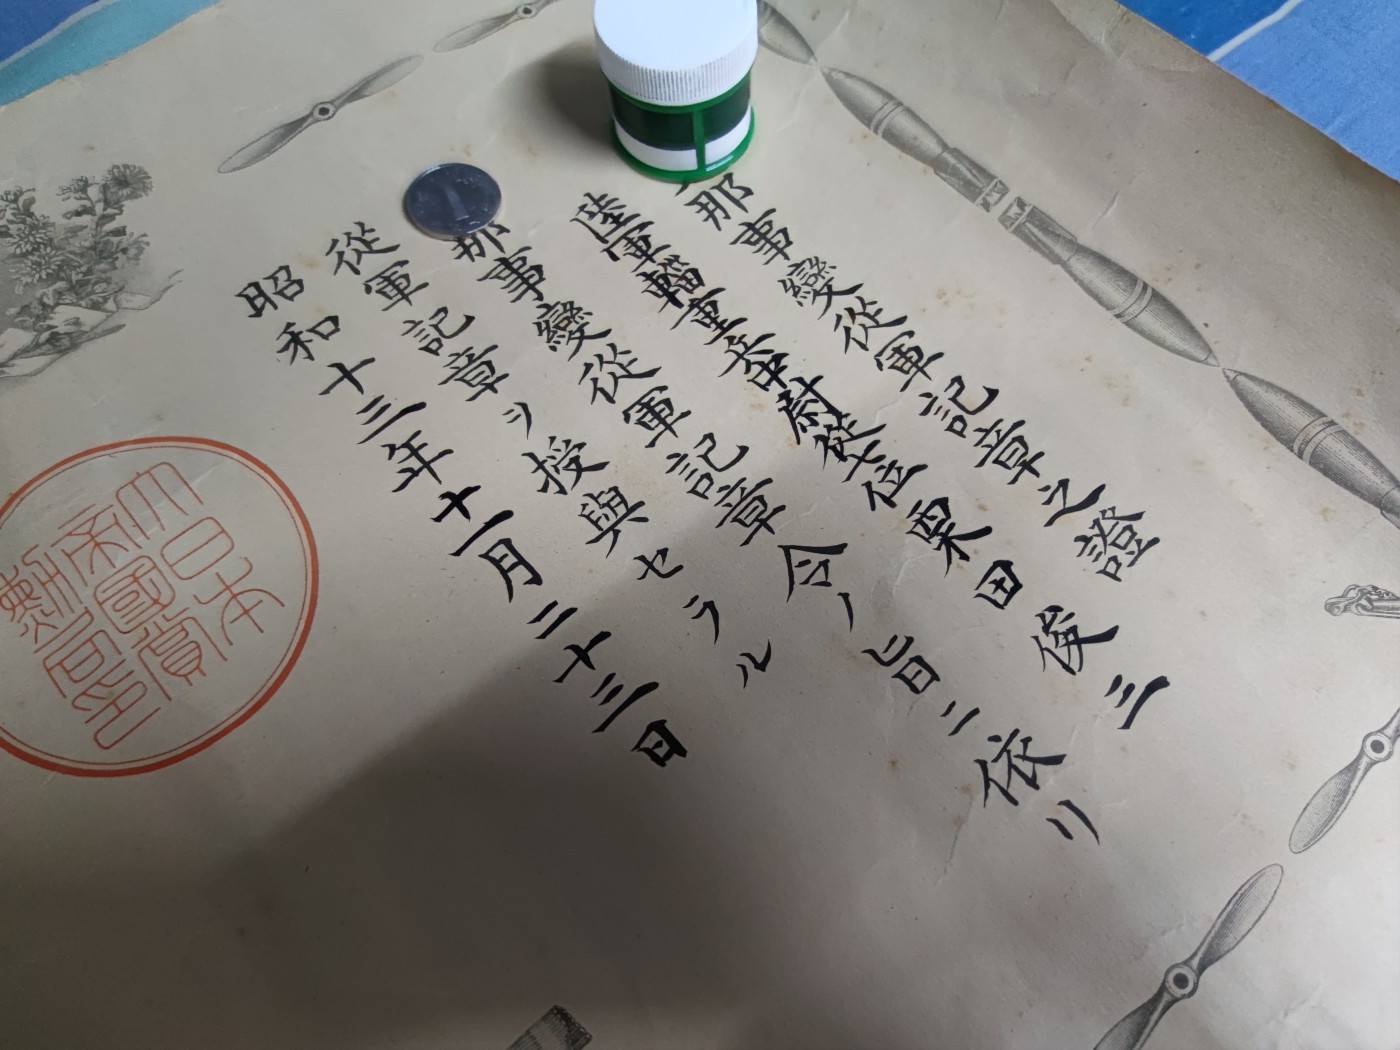 那事變從軍記章之證
陸軍輜重兵中尉從七位栗田俊三
那事變從軍記章令ノ旨ニ依リ
從軍記章ヲ授與セラル
昭和十三年十一月二十三日
大日本
帝國賞
勲局印
1